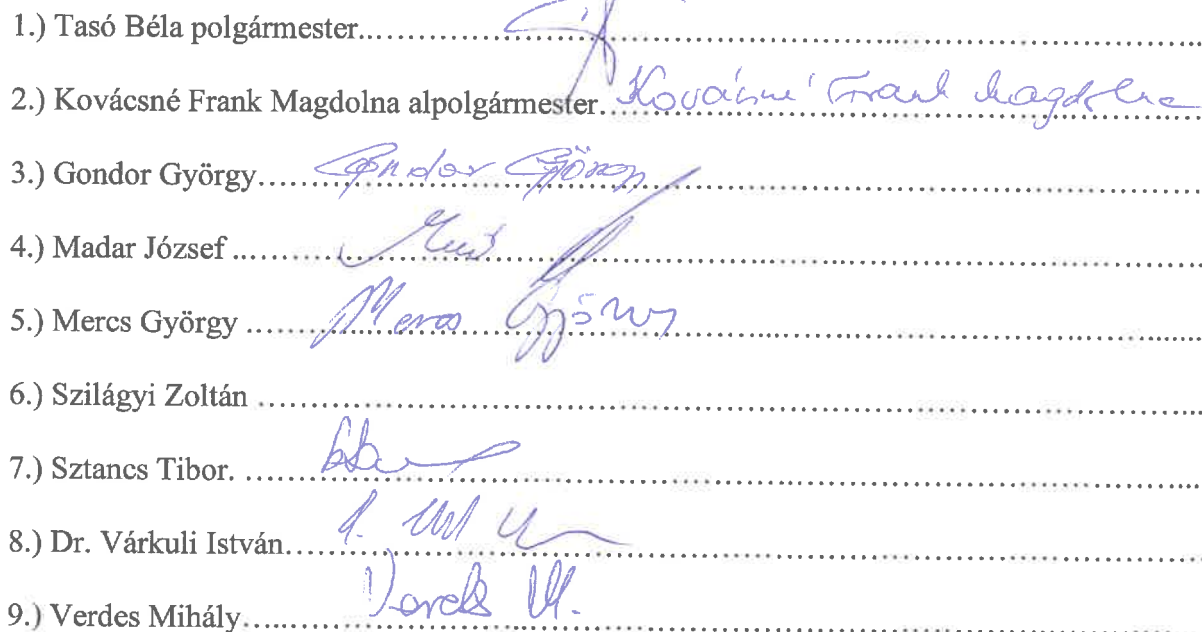 1.) Tasó Béla polgármester
2.) Kovácsné Frank Magdolna alpolgármester. Kovácsné Frank Magdolna
3.) Gondor György Gondor György
4.) Madar József
5.) Mercs György Mercs György
6.) Szilágyi Zoltán
7.) Sztancs Tibor.
8.) Dr. Várkuli István
9.) Verdes Mihály Verdes M.